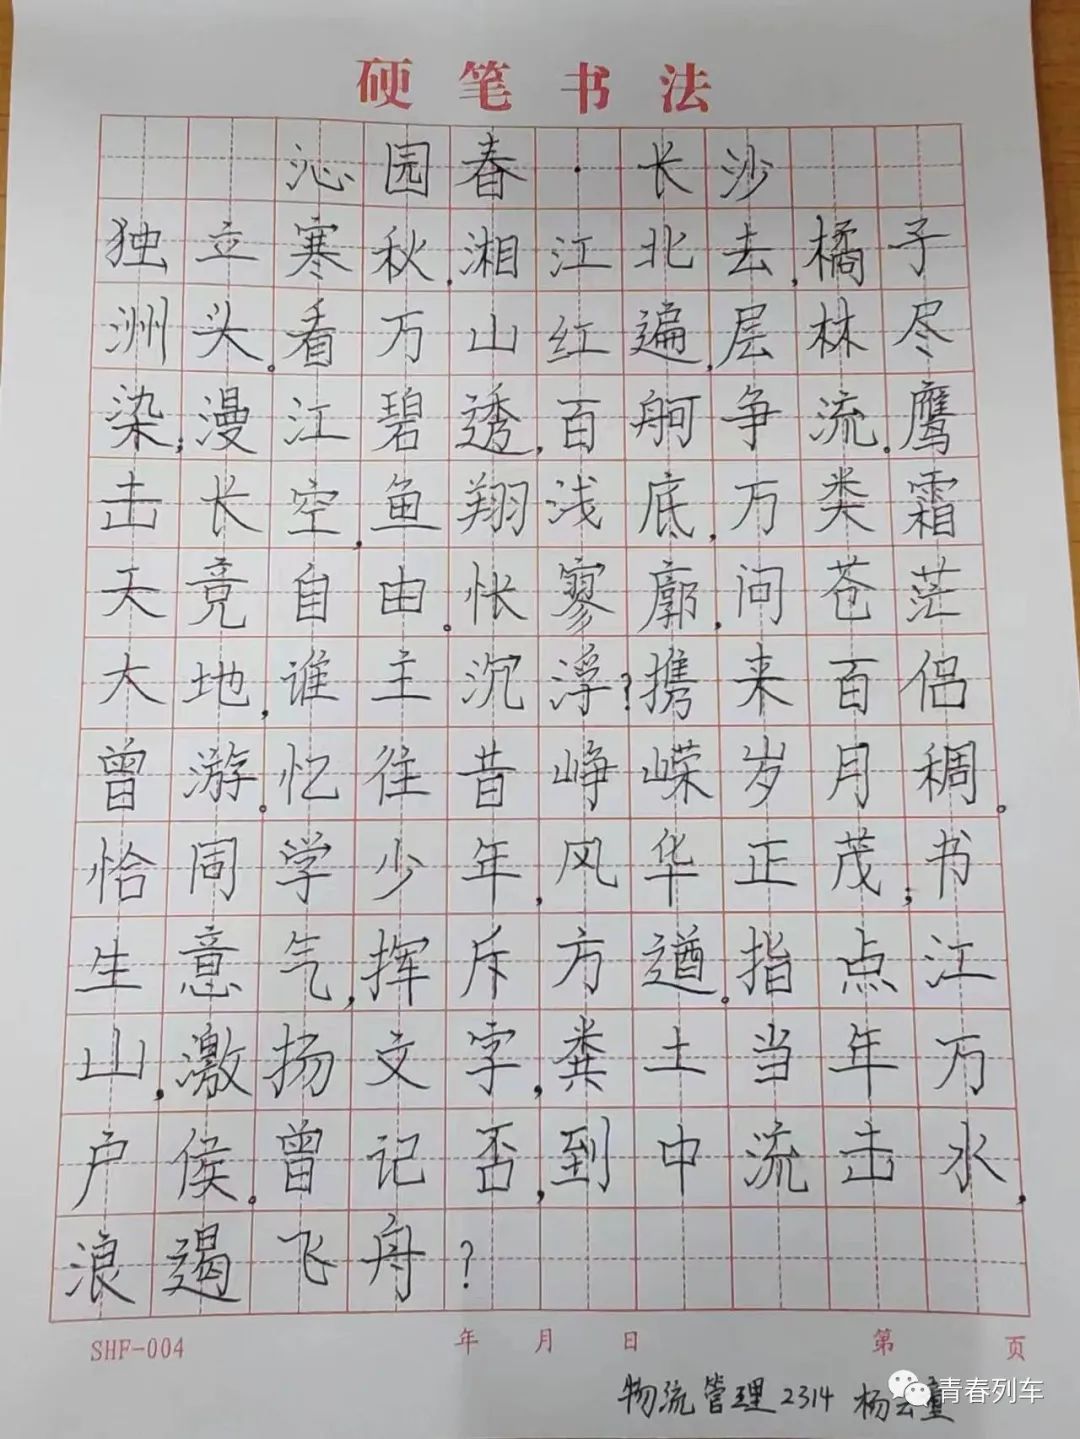 硬笔书法
沁园春·长沙
独立寒秋,湘江北去,橘子
洲头。看万山红遍,层林尽
染;漫江碧透,百舸争流。鹰
击长空,鱼翔浅底,万类霜
天竟自由。怅寥廓,问苍茫
大地,谁主沉浮?携来百侣
曾游。忆往昔峥嵘岁月稠。
恰同学少年,风华正茂;书
生意气,挥斥方遒。指点江
山,激扬文字,粪土当年万
户侯。曾记否,到中流击水,
浪遏飞舟?
SHF-004 年 月 日 第 页
物流管理2314 杨云童
青春列车